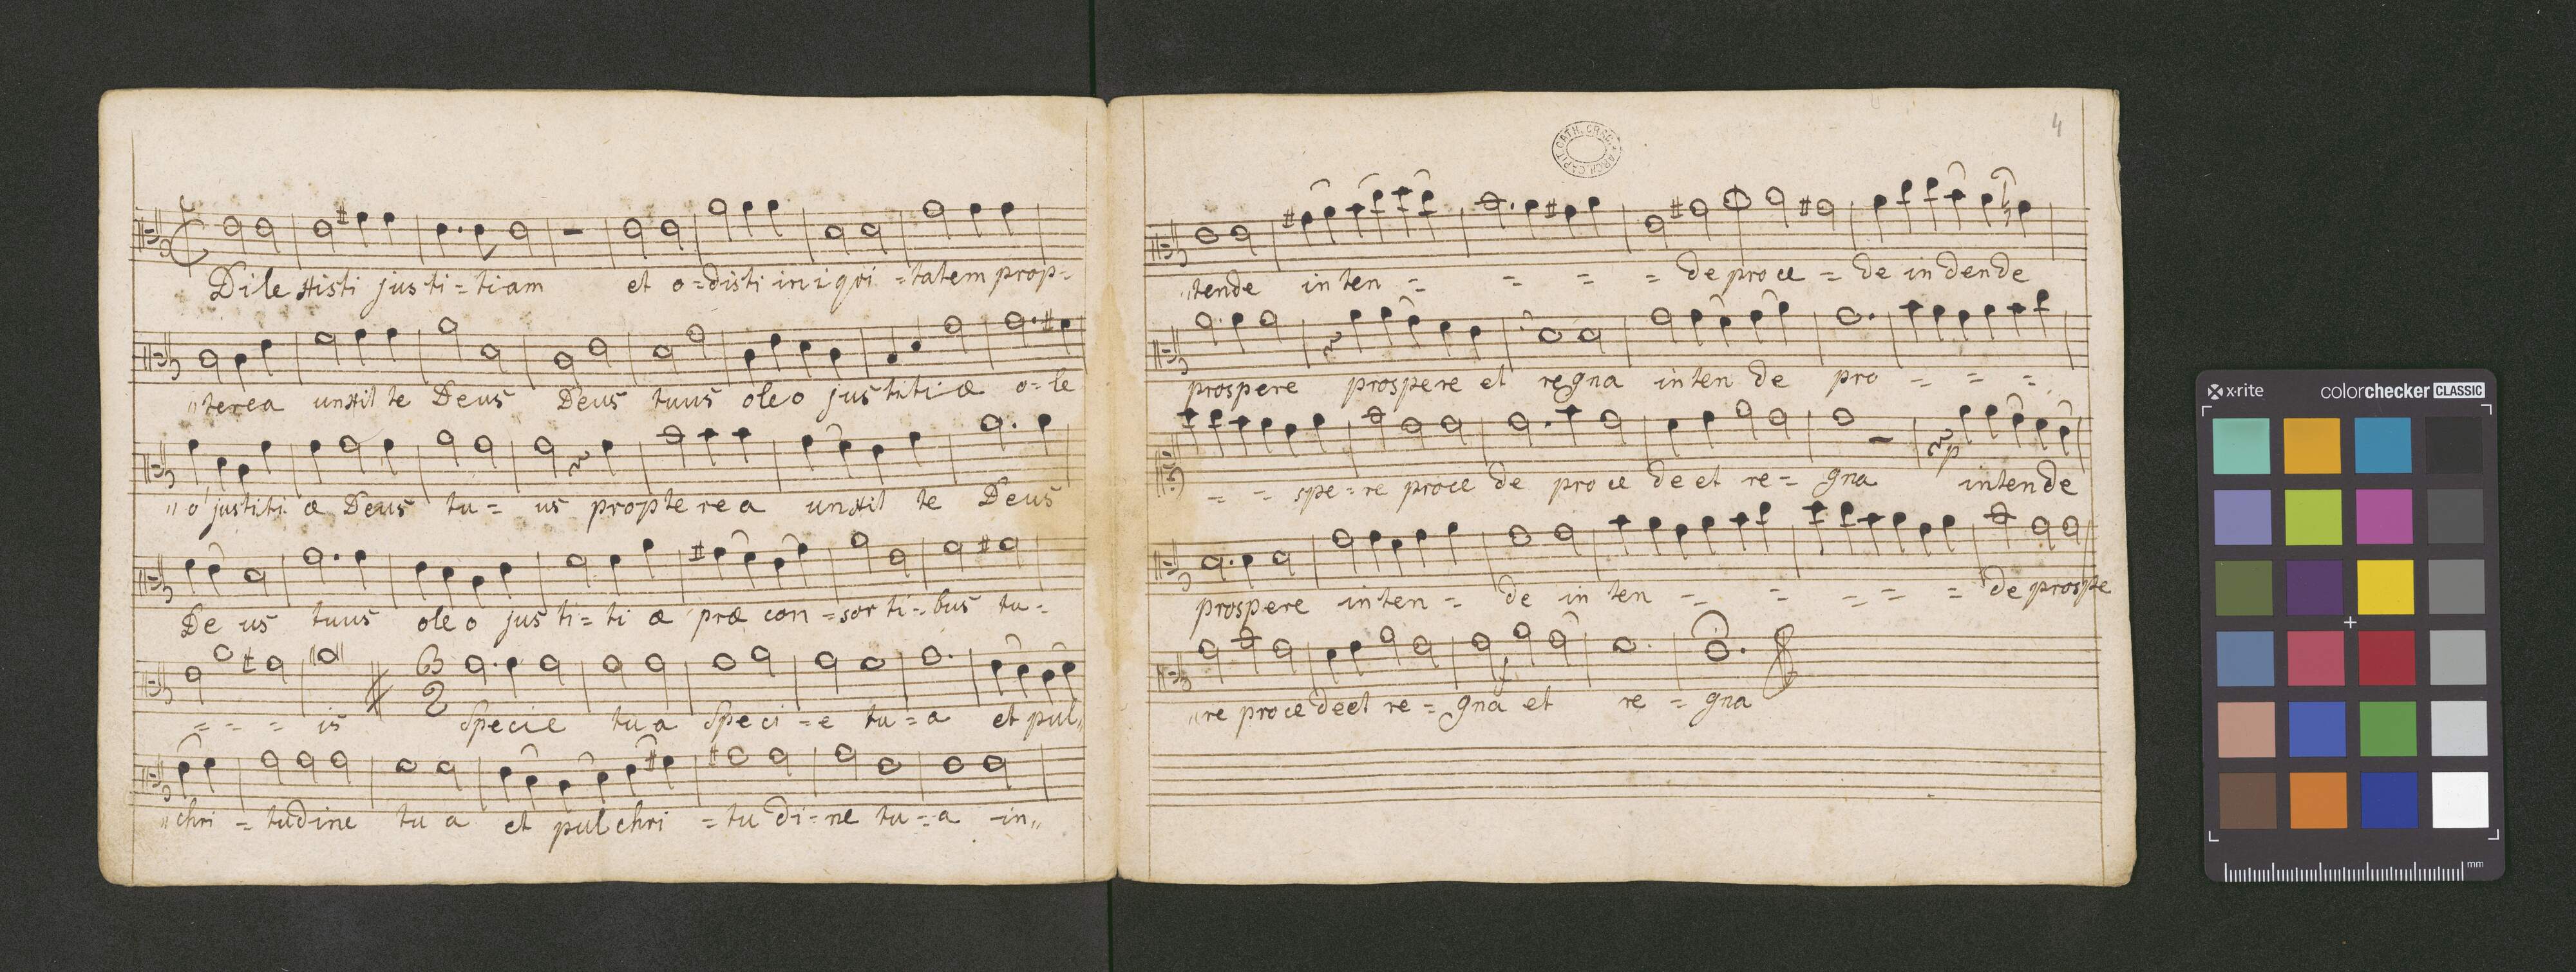 Dilexisti justi=tiam et o=disti iniqui=tatem prop=
"terea unxit te Deus Deus tuus oleo justitiæ o=le
"o justitiæ Deus tu= us propterea unxit te Deus
De us tuus oleo justi=ti æ præ con=sorti=bus tu=
= = = is 3 2 Specie tua Speci=e tu=a et pul"
"chri = tudine tu a et pulchri =tu di=ne tu=a in"
4
ARCH. CAPIT. CATH. CRAC.
"tende inten = = = = de proce = de indende
prospere prospere et regna inten de pro = = =
= = spe=re proce de proce de et re= gna intende
prospere inten = de in ten = = = = = de prospe
"re procedeet re=gna et re = gna
x·rite colorchecker CLASSIC
mm